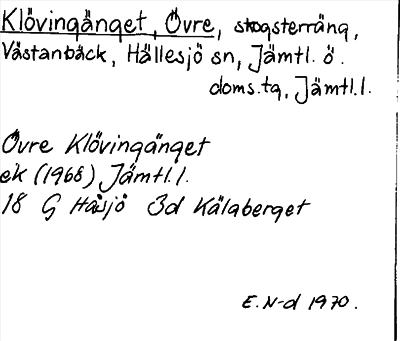 Klövingänget, Övre, skogsterräng,
Västanbäck, Hällesjö sn, Jämtl. ö.
doms.tg, Jämtl.l.
Övre Klövingänget
ek (1968) Jämtl.l.
18 G Håsjö 3d Kälaberget
E.N-d 1970.